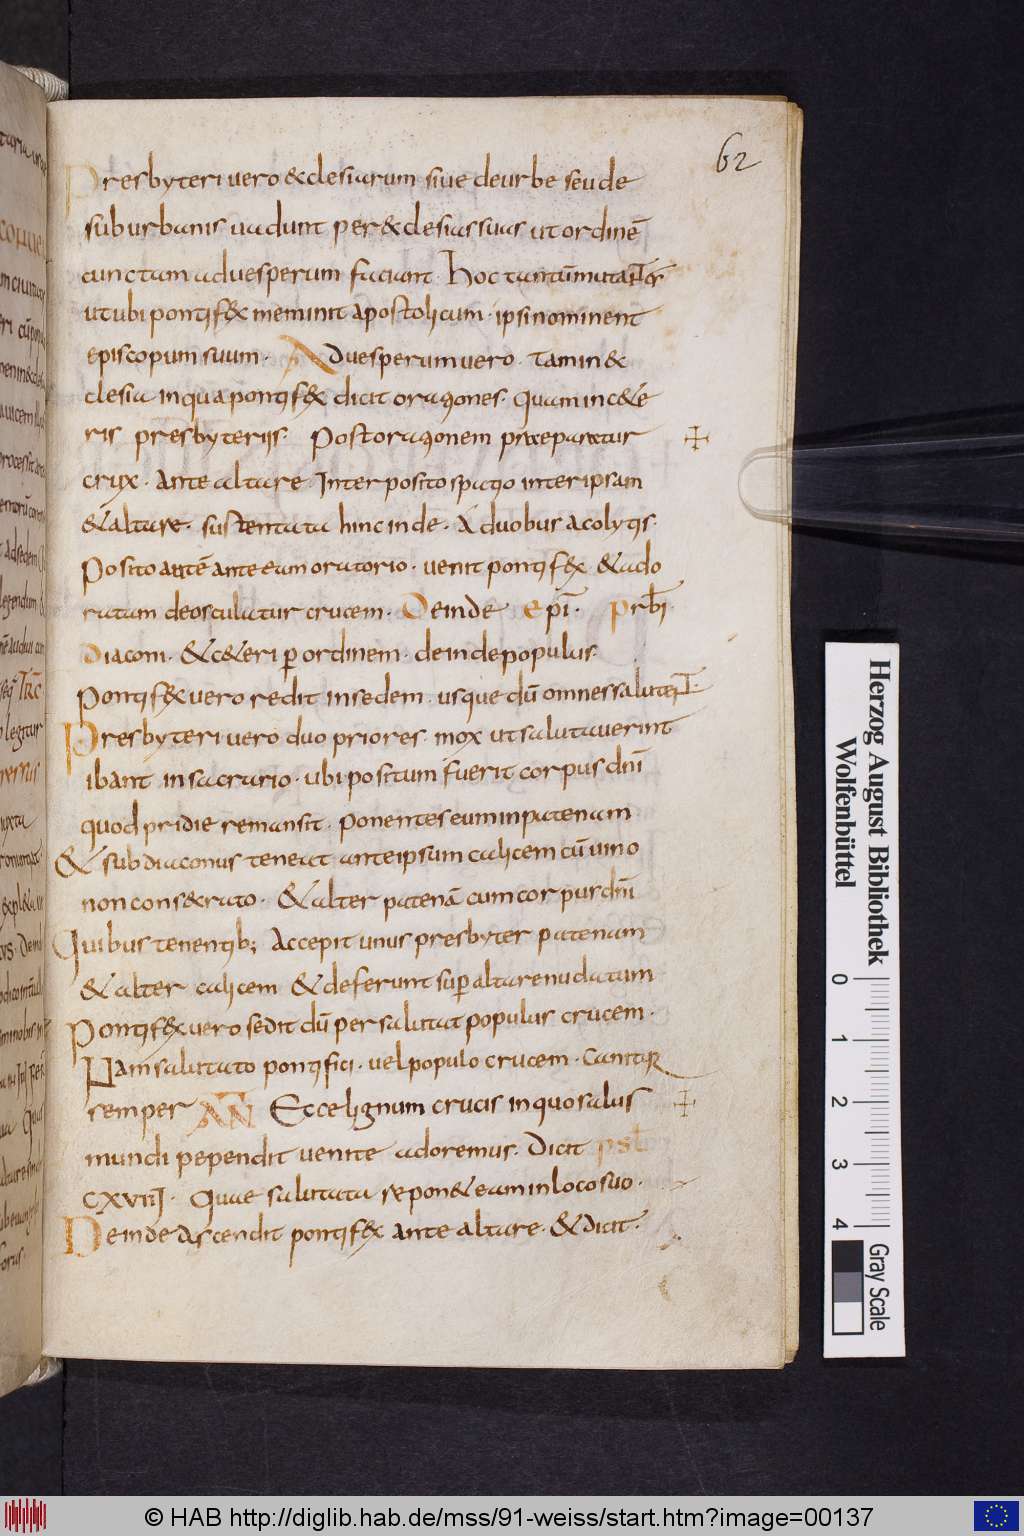 62
Presbyteri uero &clesiarum siue deurbe seu de
suburbanis uadunt per &clesias suas ut ordinē
cunctam aduesperum faciunt. hoc tantū mutat̄
ut ubi pontif&x meminit apostolicum. ipsi nominent
episcopum suum. Aduesperum uero. tam in &
clesia in qua pontif&x dicit orationes. quam in c&e
ris presbyteriis. Post orationem praeparatur
crux. ante altare Inter posito spatio inter ipsam
& altare. sustentata hinc inde. A duobus acolytis.
Posito autē ante eam oratorio. uenit pontif&x. & ado
ratam deosculatur crucem. Deinde epī. prb̄i
Diaconi. & c&eri ꝑ ordinem. deinde populus.
Pontif&x uero redit in sedem. usque dū omnes salutent.
Presbyteri uero duo priores. mox ut salutauerint
ibant in sacrario. ubi positum fuerit corpus dn̄i
quod pridie remansit. ponentes eum in patenam
& subdiaconus teneat ante ipsum calicem cū uino
non cons&crato. & alter patenā cum corpus dn̄i
Quibus tenentib; Accepit unus presbyter patenam
& alter calicem & deferunt suꝑ altare nudatum
Pontif&x uero sedit dū persalutat populus crucem.
Nam salutato pontifici. uel populo crucem. Canitur
semper AÑ Ecce lignum crucis in quo salus
mundi pependit uenite adoremus. Dicit psl̄
CXVIII. Quae salutata repon&eam in loco suo.
Deinde ascendit pontif&x ante altare. & dicit.
Herzog August Bibliothek
Wolfenbüttel
0 1 2 3 4
Gray Scale
© HAB http://diglib.hab.de/mss/91-weiss/start.htm?image=00137